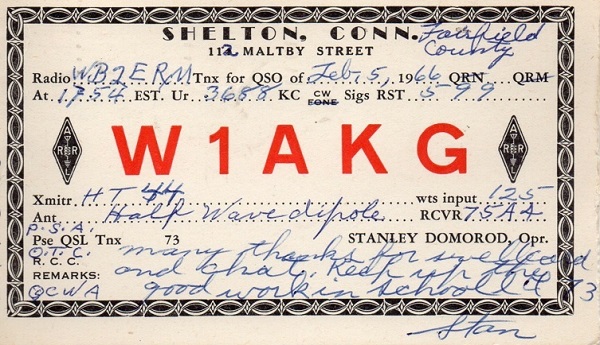 SHELTON, CONN. Fairfield
112 MALTBY STREET County
Radio WB2ERM Tnx for QSO of Feb. 5, 1966 QRN QRM
At 1754 EST. Ur 3688 KC CW FONE Sigs RST 599
W1AKG
Xmitr HT 44 wts input 125
Ant Half Wave dipole RCVR 75AA
P.S.A.
Pse QSL Tnx 73 STANLEY DOMOROD, Opr.
O.T.C. many thanks for swell card
R.C.C. and chat. Keep up the
REMARKS: good work in school 73
QCWA
Stan